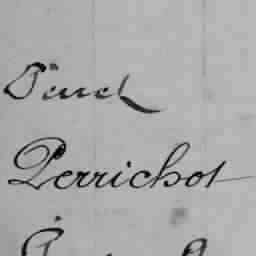 Pinel
Perrichot